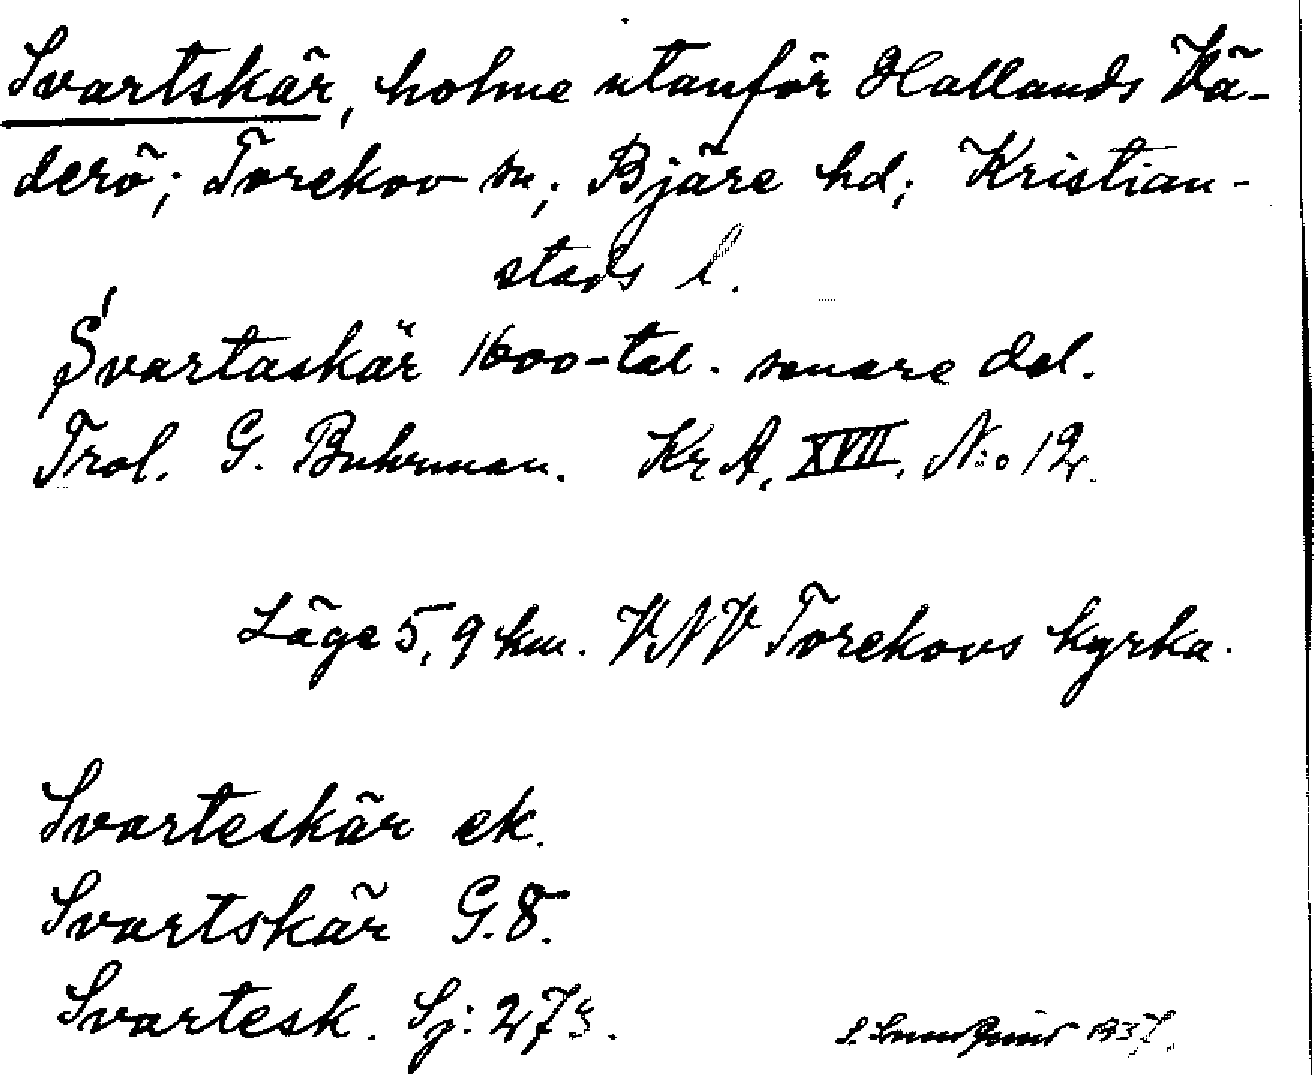 Svartskär, holme utanför Hallands Vä-
derö; Torekov sn; Bjäre hd; Kristian-
stads l.
Svartaskär 1600-tal. senare del.
Trol. G. Buhrman. Kr A. XVII. N:o 12.
Läge 5,9 km. VNV Torekovs kyrka.
Svarteskär ek.
Svartskär G.8.
Svartesk. Sj: 273.
1937.